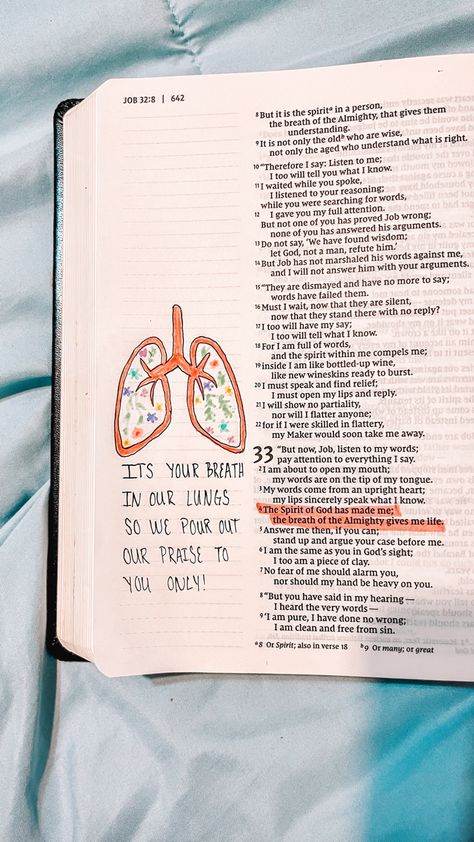 JOB 32:8 | 642
8But it is the spiritᵃ in a person,
the breath of the Almighty, that gives them
understanding.
9It is not only the oldᵇ who are wise,
not only the aged who understand what is right.
10“Therefore I say: Listen to me;
I too will tell you what I know.
11I waited while you spoke,
I listened to your reasoning;
while you were searching for words,
12 I gave you my full attention.
But not one of you has proved Job wrong;
none of you has answered his arguments.
13Do not say, ‘We have found wisdom;
let God, not a man, refute him.’
14But Job has not marshaled his words against me,
and I will not answer him with your arguments.
15“They are dismayed and have no more to say;
words have failed them.
16Must I wait, now that they are silent,
now that they stand there with no reply?
17I too will have my say;
I too will tell what I know.
18For I am full of words,
and the spirit within me compels me;
19inside I am like bottled-up wine,
like new wineskins ready to burst.
20I must speak and find relief;
I must open my lips and reply.
21I will show no partiality,
nor will I flatter anyone;
22for if I were skilled in flattery,
my Maker would soon take me away.
33 “But now, Job, listen to my words;
pay attention to everything I say.
2I am about to open my mouth;
my words are on the tip of my tongue.
3My words come from an upright heart;
my lips sincerely speak what I know.
4The Spirit of God has made me;
the breath of the Almighty gives me life.
5Answer me then, if you can;
stand up and argue your case before me.
6I am the same as you in God’s sight;
I too am a piece of clay.
7No fear of me should alarm you,
nor should my hand be heavy on you.
8“But you have said in my hearing—
I heard the very words—
9‘I am pure, I have done no wrong;
I am clean and free from sin.
ᵃ8 Or Spirit; also in verse 18 ᵇ9 Or many; or great
ITS YOUR BREATH
IN OUR LUNGS
SO WE POUR OUT
OUR PRAISE TO
YOU ONLY!